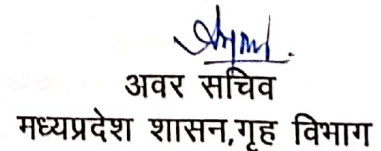 अवर सचिव
मध्यप्रदेश शासन,गृह विभाग